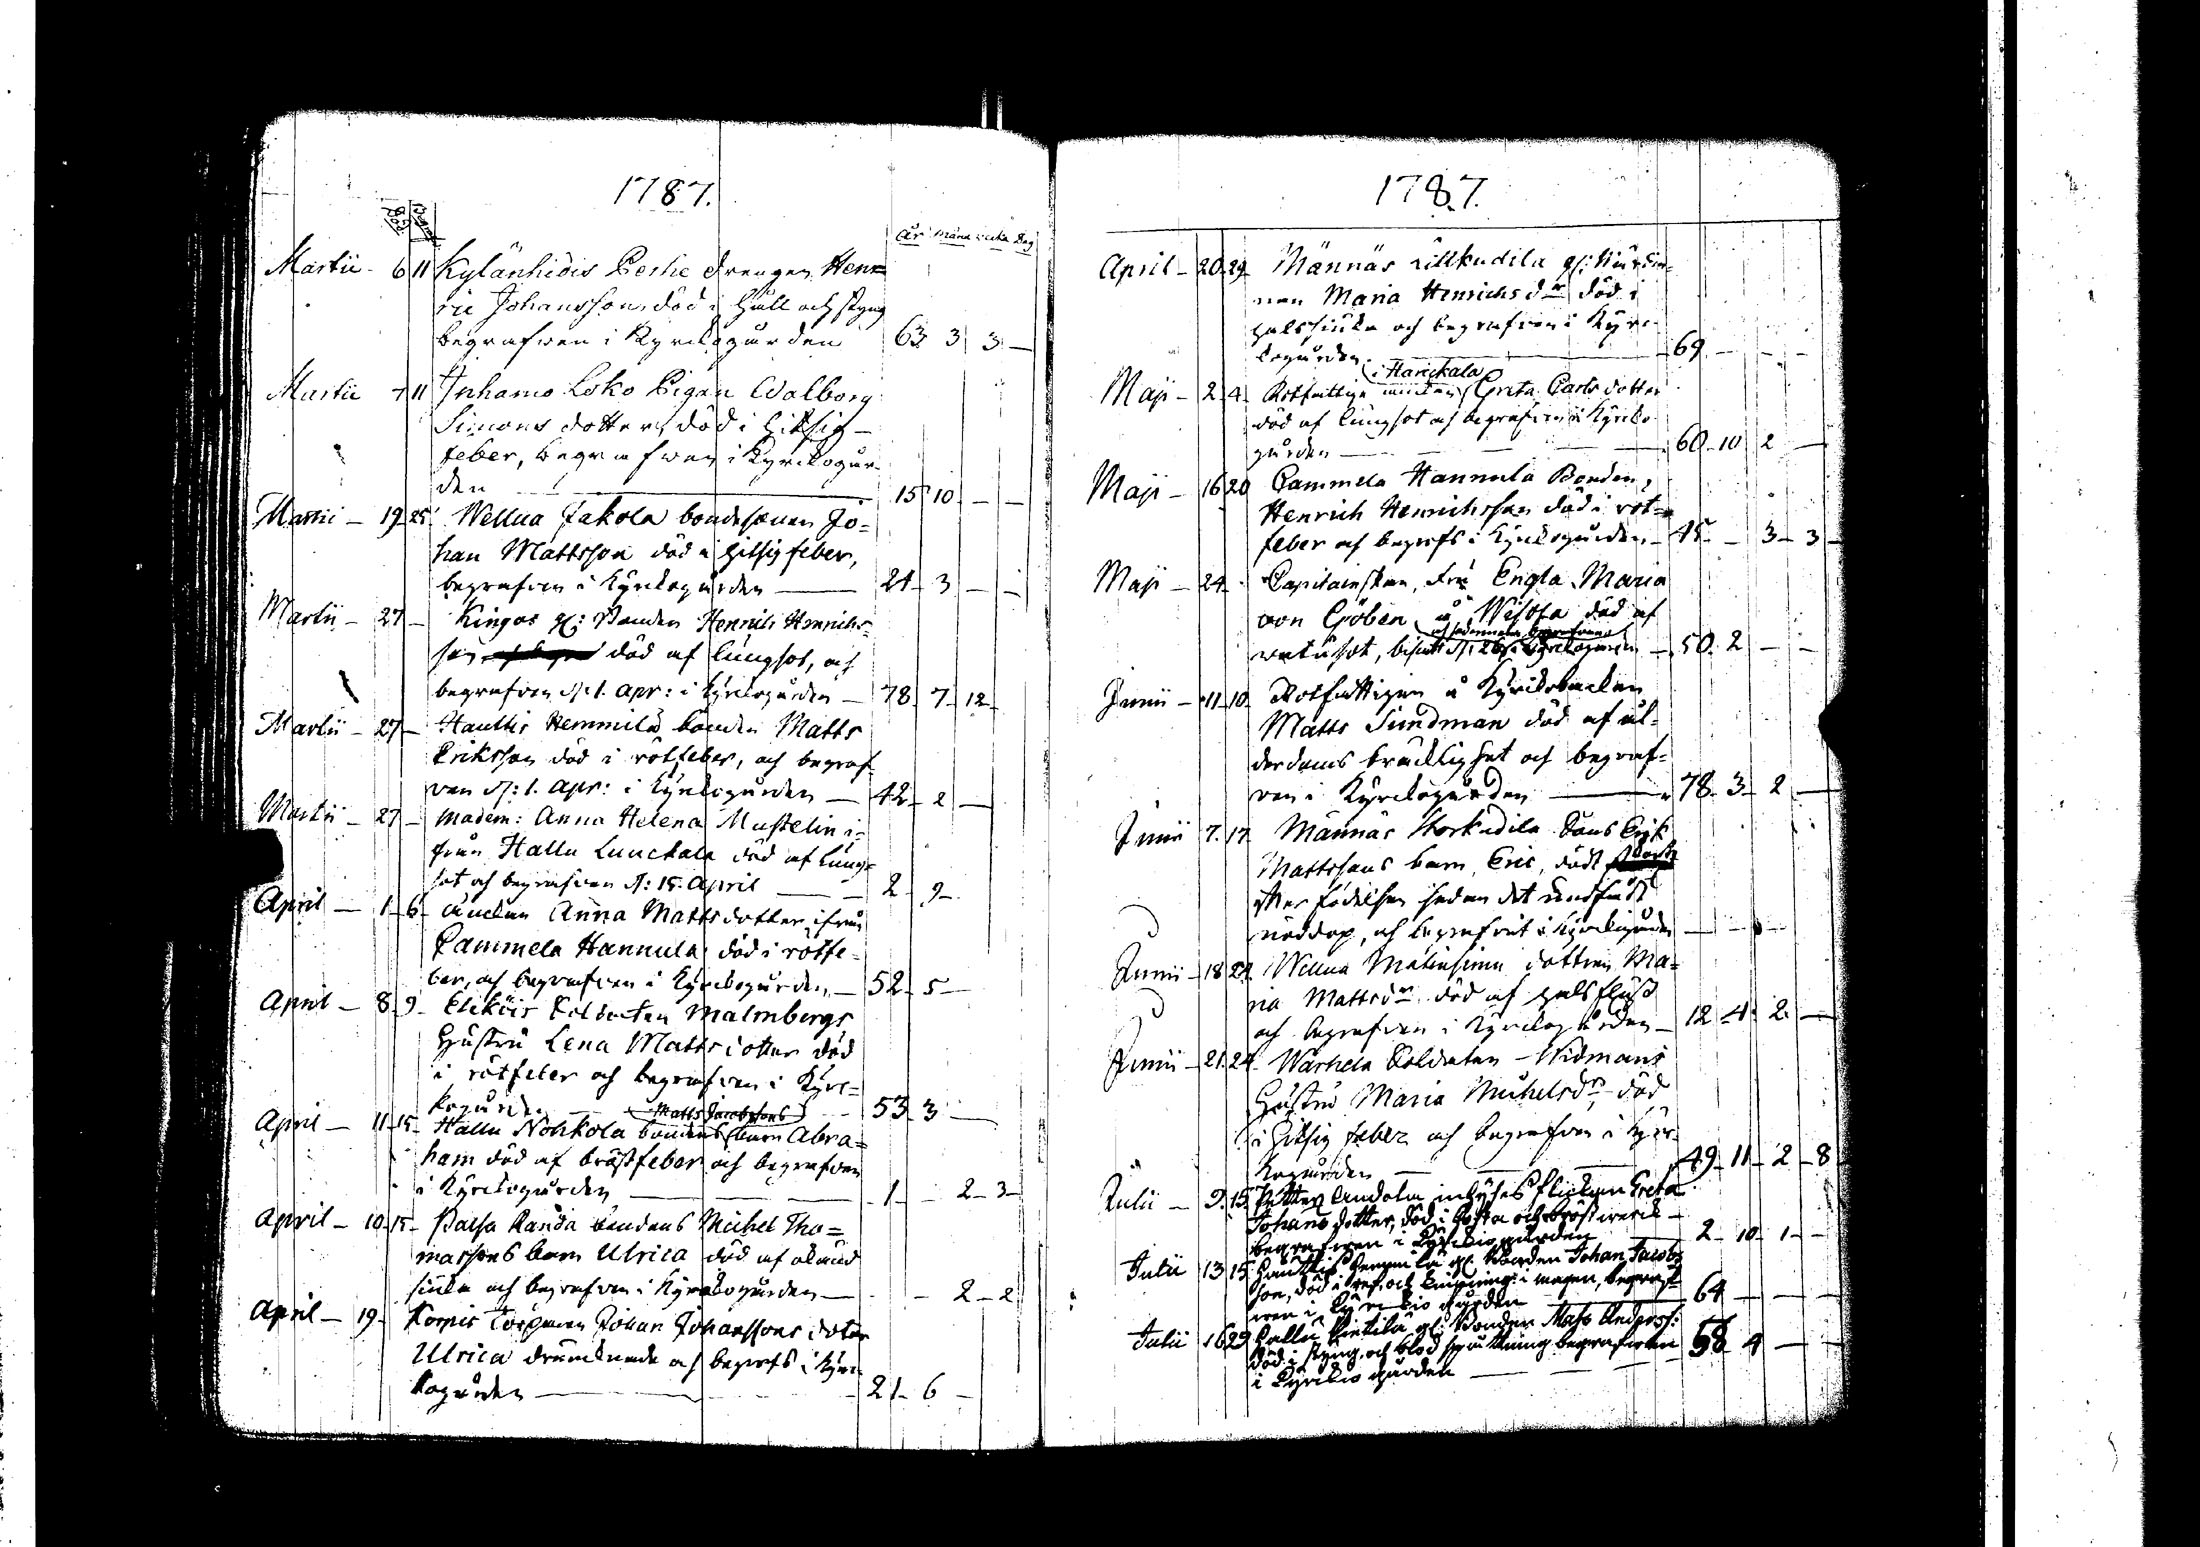 1787.
Död Begraf
År Mån Wecka Dag
Martii - 6 11 Kylänhiöis Perhe drengen Hen=
ric Johansson, död i håll och styng
begrafwen i Kyrckogården 63 3 3 —
Martii 7 11 Inhamo Loko Pigan Walborg
Simons dotter, död i hitsig
feber, begrafwen i Kyrckogår
den — 15 10 — —
Martii - 19 25 Wellua Jakola bondesonen Jo=
han Mattsson död i hitsig feber,
begrafven i Kyrckogården — 21 3 — —
Martii - 27 — Kingas gl: Bonden Henrich Henrichs=
son död af lungsot, och
begrafven d: 1. apr: i Kyrckogården — 78 7 12
Martii - 27 — Hauttis Hemmilä bonden Matts
Eriksson död i rötfeber, och begraf
ven d: 1. apr: i Kyrckogården — 42 2 —
Martii - 27 — Madem: Anna Helena Mustelin i=
från Halla Luuckala död af lung=
sot och begrafven d: 15. April — 2 9
April — 1 6 änckan Anna Mattsdotter ifrån
Cammela Hannula död i rötfe=
ber, och begrafven i Kyrckogården — 52 5 —
April — 8 9 Soldaten Malmbergs
Hustru Lena Mattsdotter död
i rötfeber och begrafven i Kyrc=
kogården — 53 3 —
Matts Jacobssons
April — 11 15 Halla Nohkola bondens barn Abra=
ham död af bröstfeber och begrafven
i Kyrckogården — 1 — 2 3
April — 10 15 Palsa Randa bondens Michel Tho=
massons barn Ulrica död af okänd
siuka och begrafven i Kyrckogården — — 2 2
April — 19 Torparen Johan Johanssons doter
Ulrica drunknade och begrofs i Kyrc
kogården — 21 6 —
1787.
April - 20 29 Männäs Lillkudila gl: Wärdin=
nan Maria Henrichs dr död i
halssiuka och begrafven i Kyrc=
kogården. — 69 — — —
i Harickala
Maji - 2 4 Rotfattige änckan Greta Carls dotter
död af lungsot och begrafven i Kyrcko
gården — 60 10 2 —
Maji - 16 20 Cammela Hannula Bonden,
Henrich Henrichsson död i röt=
feber och begrofs i Kyrckogården 45 — 3 3
Maji - 24 Capitainskan, Fru Engla Maria
von Cöben å Wistla död af
och sedermera begrafven
watusot, bisatt d: 26. i Kyrckogården — 50 2 — —
Junii - 11 10 Rotfattigen å Kyrckobacken
Matts Sundman död af ål=
derdoms bräcklighet och begraf=
ven i Kyrckogården — 78 3 2 —
Junii 7 17 Männäs Storkudila Sons Erik
Mattssons barn, Eric, dödt strax
efter födelsen sedan det undfådt
nöddop, och begrafvit i Kyrckogården — — —
Junii - 18 24 Wellua dottren Ma=
ria Mattsdr död af halsfluss
och begrafven i Kyrckogården — 12 4 2 —
Junii - 21 24 Warhela Soldaten Widmans
Hustru Maria Michelsdr död
i hitsig feber och begrafven i Kyrc
kogården — 49 11 2 8
Julii — 9 15 Andola inhyses flickan Greta
Johans dotter, död i hosta och bröstwerck —
begrafwen i Kyrckio gården — 2 10 1 —
Julii 13 15 Hauttis Hemmilä gl. Bonden Johan Jacobs
son, död i ref och knipning i magen, begraf=
wen i Kyrckio gården — 64 — — —
Julii 16 29 Halla Pietilä gl: Bonden Mats Anderss:
död i styng, och blod sputtning begrafwen
i Kyrckio gården — 58 4 — —